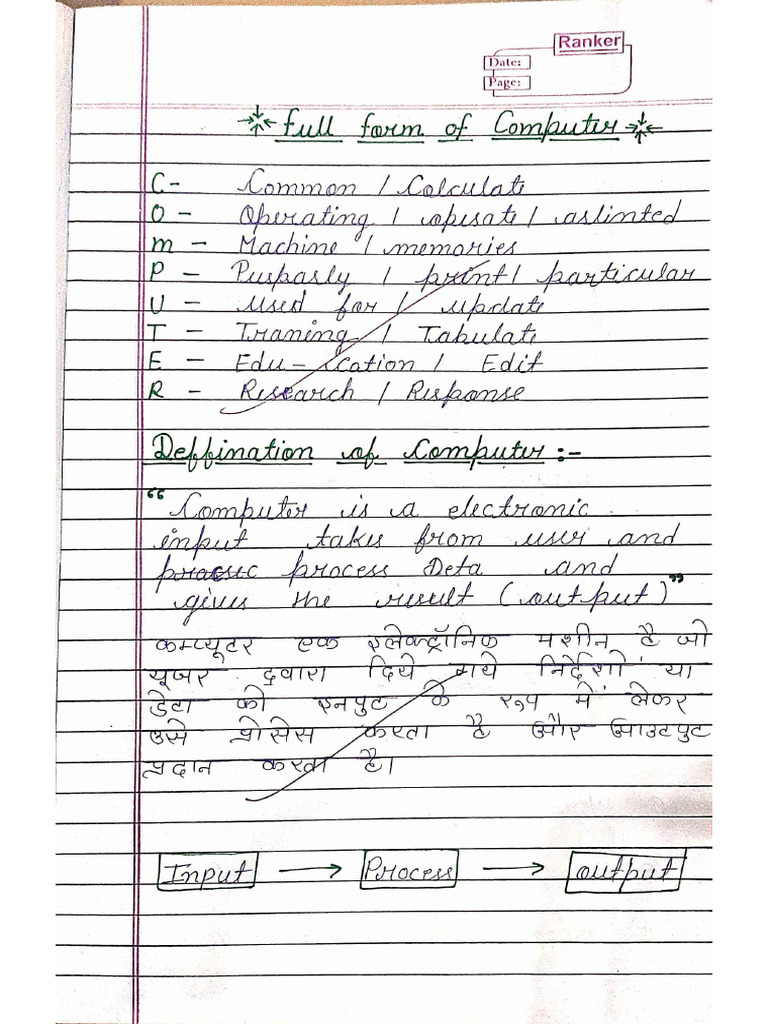 Ranker
Date:
Page:
Full form of Computer
C- Common / Calculate
O - Operating / opesate / aslimted
m - Machine / memories
P - Pusparly / print / particular
U - used for / update
T - Traning / Tabulate
E - Edu-cation / Edit
R - Research / Response
Deffination of Computer :-
“Computer is a electronic
input takes from user and
process Deta and
gives the result (output)”
कम्प्यूटर एक इलेक्ट्रॉनिक मशीन है जो
यूजर द्वारा दिये गये निर्देशों या
डेटा को इनपुट के रुप में लेकर
उसे प्रोसेस करता है और आउटपुट
प्रदान करता है।
Input → Process → output